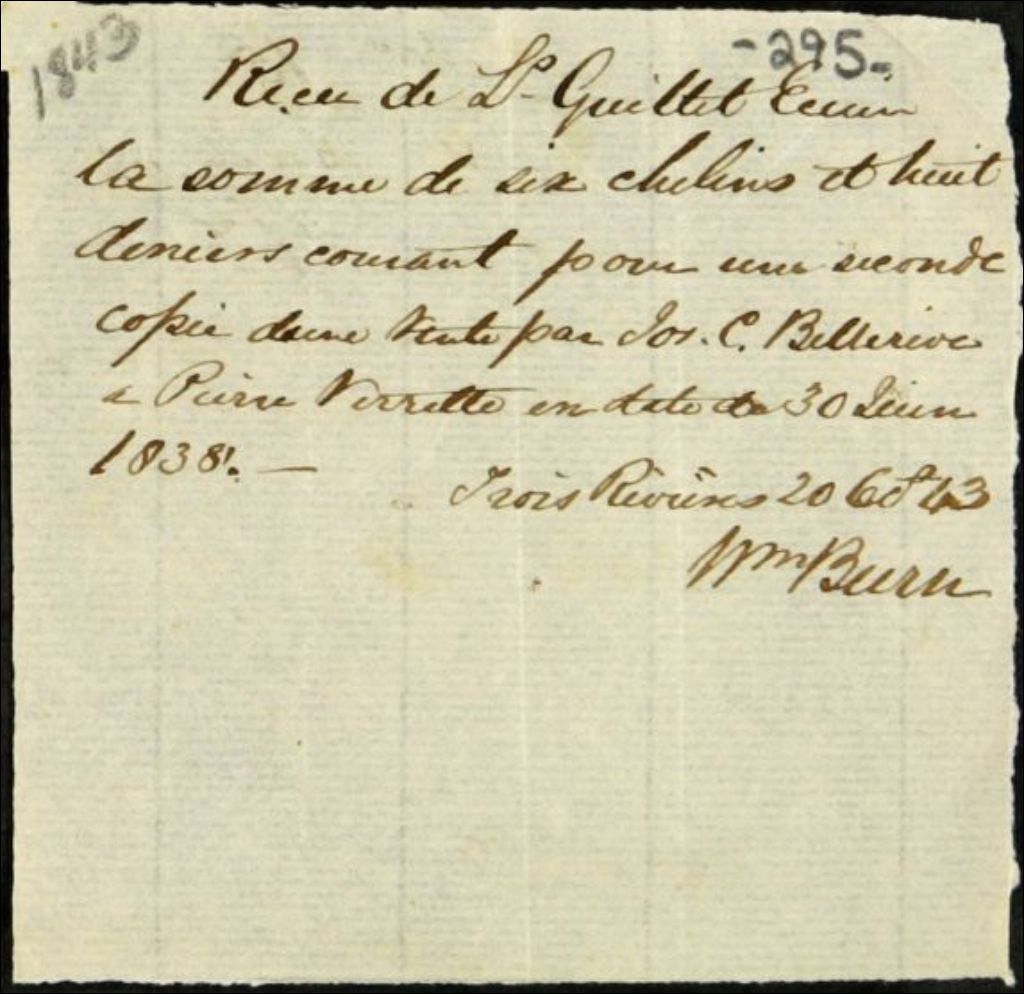 1843
-295-
Recu de Ls. Guillet Ecuier
la somme de six chelins et huit
deniers courant pour une seconde
copie dune Vente par Jos. C. Bellerive
a Pierre Verrette en date du 30 Juin
1838. —
Trois Rivières 20 Oct 43
Wm Burn